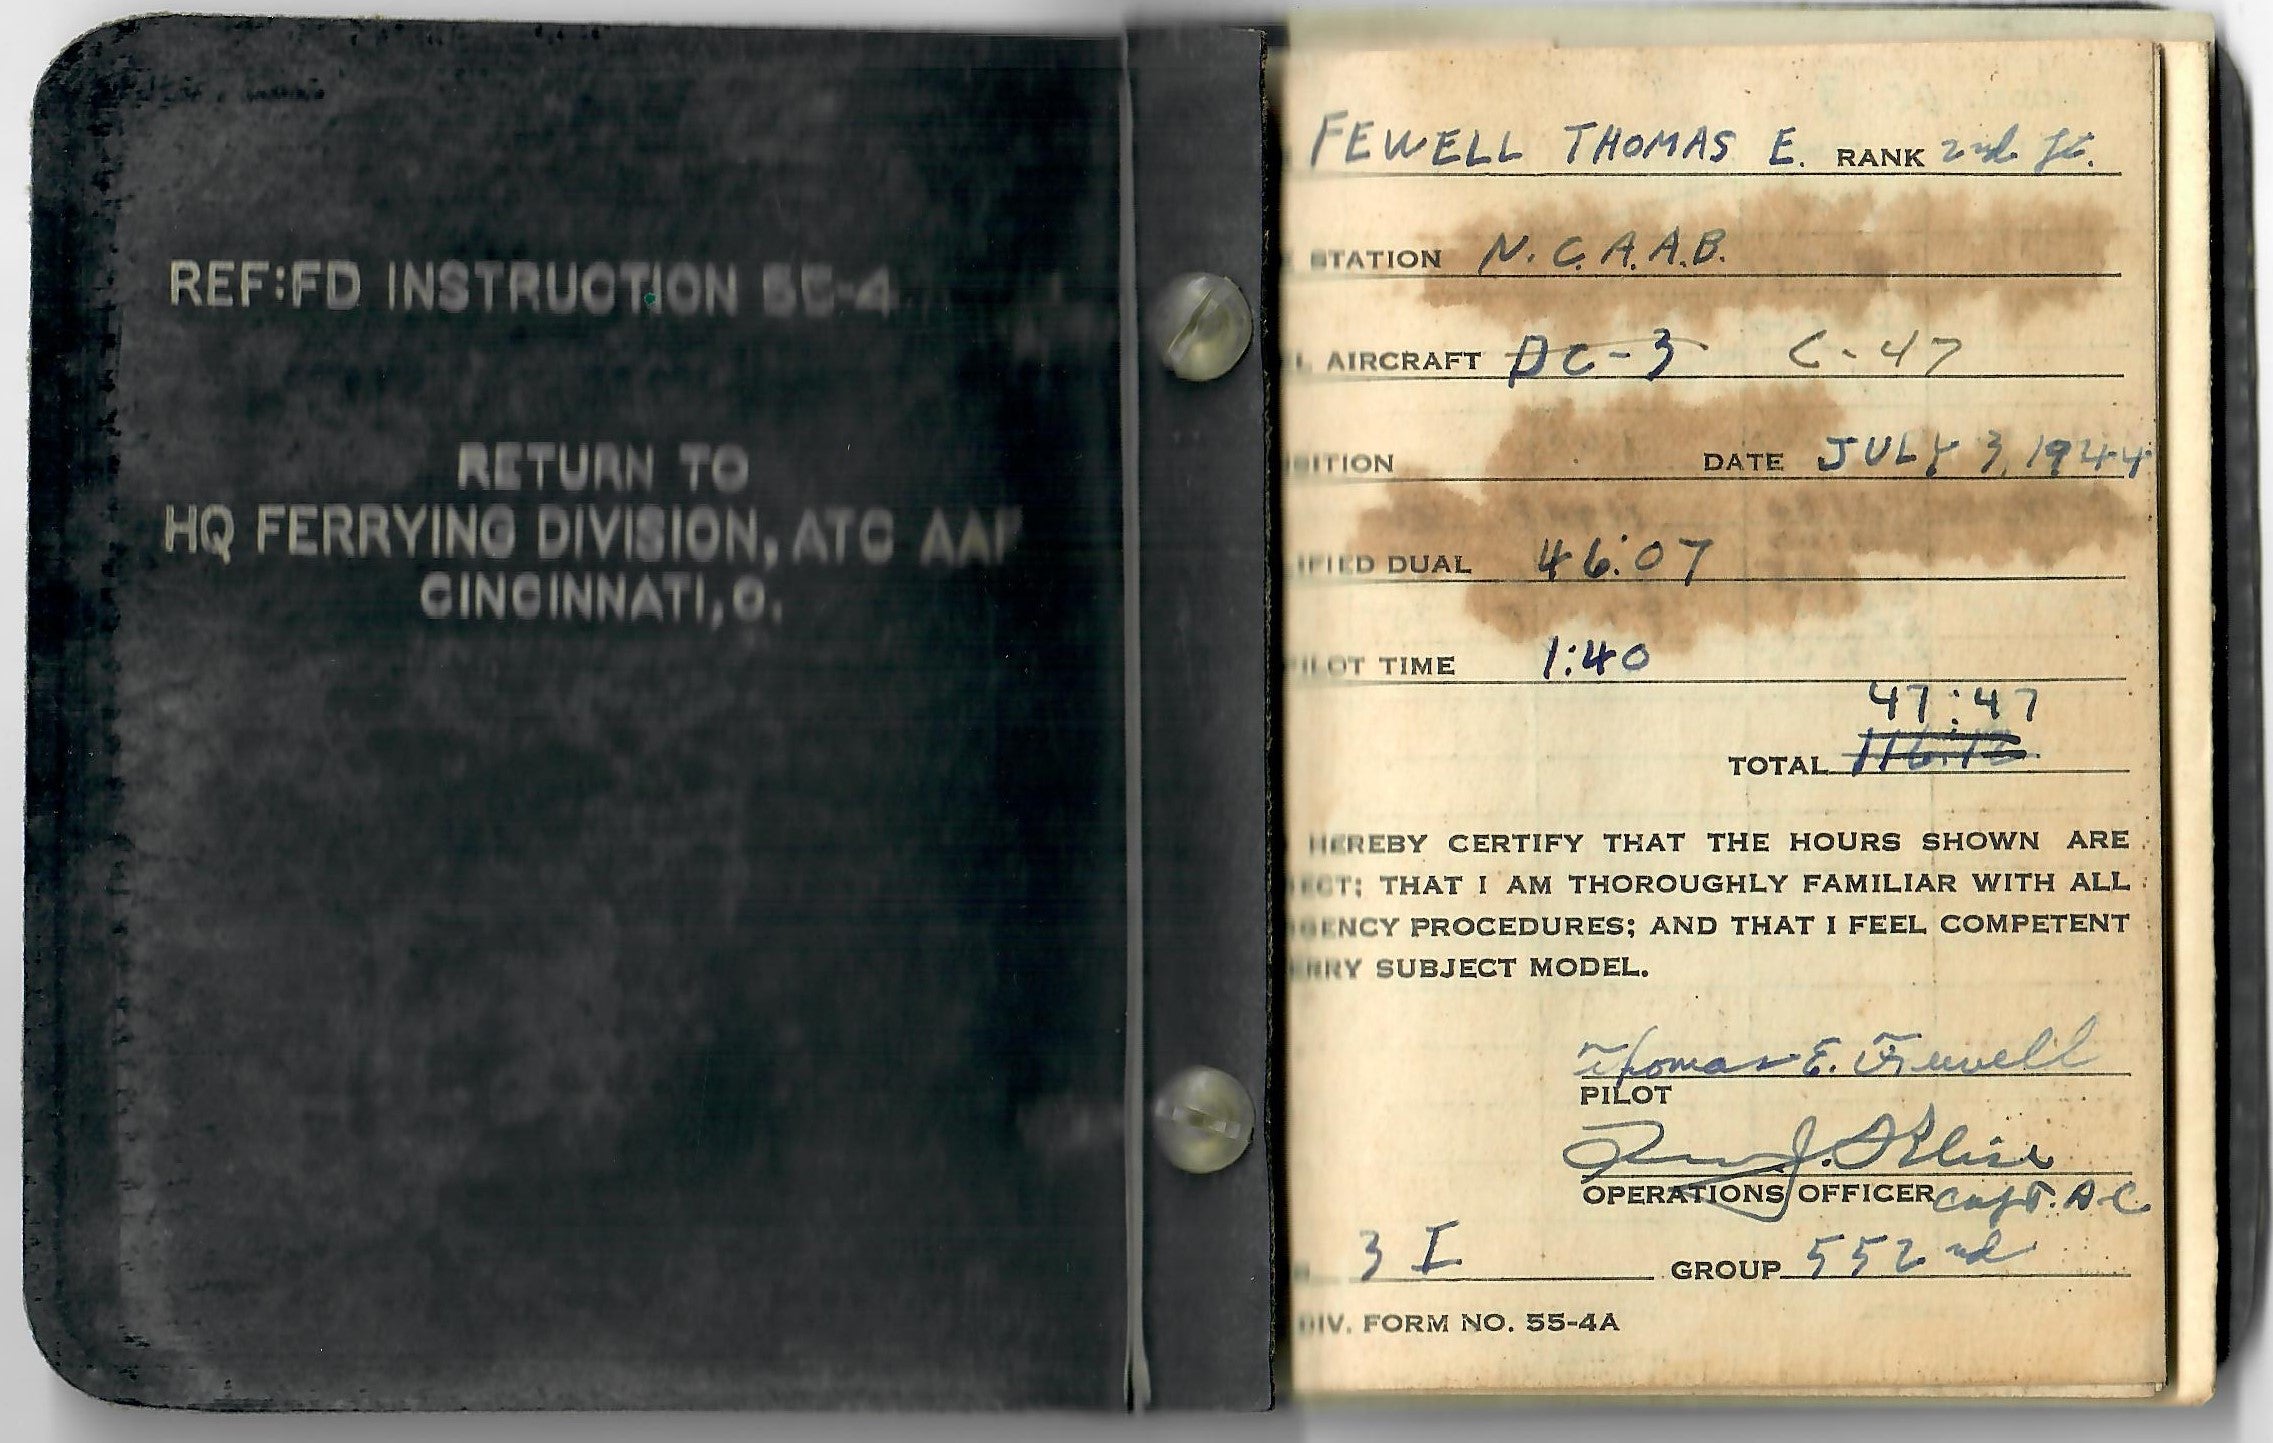 REF:FD INSTRUCTION 55-4
RETURN TO
HQ FERRYING DIVISION, ATC AAF
CINCINNATI, O.
FEWELL THOMAS E. RANK 2nd Lt.
STATION N.C.A.A.B.
AIRCRAFT DC-3 C-47
SITION DATE JULY 3, 1944
IFIED DUAL 46:07
PILOT TIME 1:40
47:47
TOTAL 116:12
HEREBY CERTIFY THAT THE HOURS SHOWN ARE
ECT; THAT I AM THOROUGHLY FAMILIAR WITH ALL
GENCY PROCEDURES; AND THAT I FEEL COMPETENT
ERRY SUBJECT MODEL.
Thomas E. Fewell
PILOT
J.
OPERATIONS OFFICER Capt. A.C.
3 I GROUP 552nd
DIV. FORM NO. 55-4A